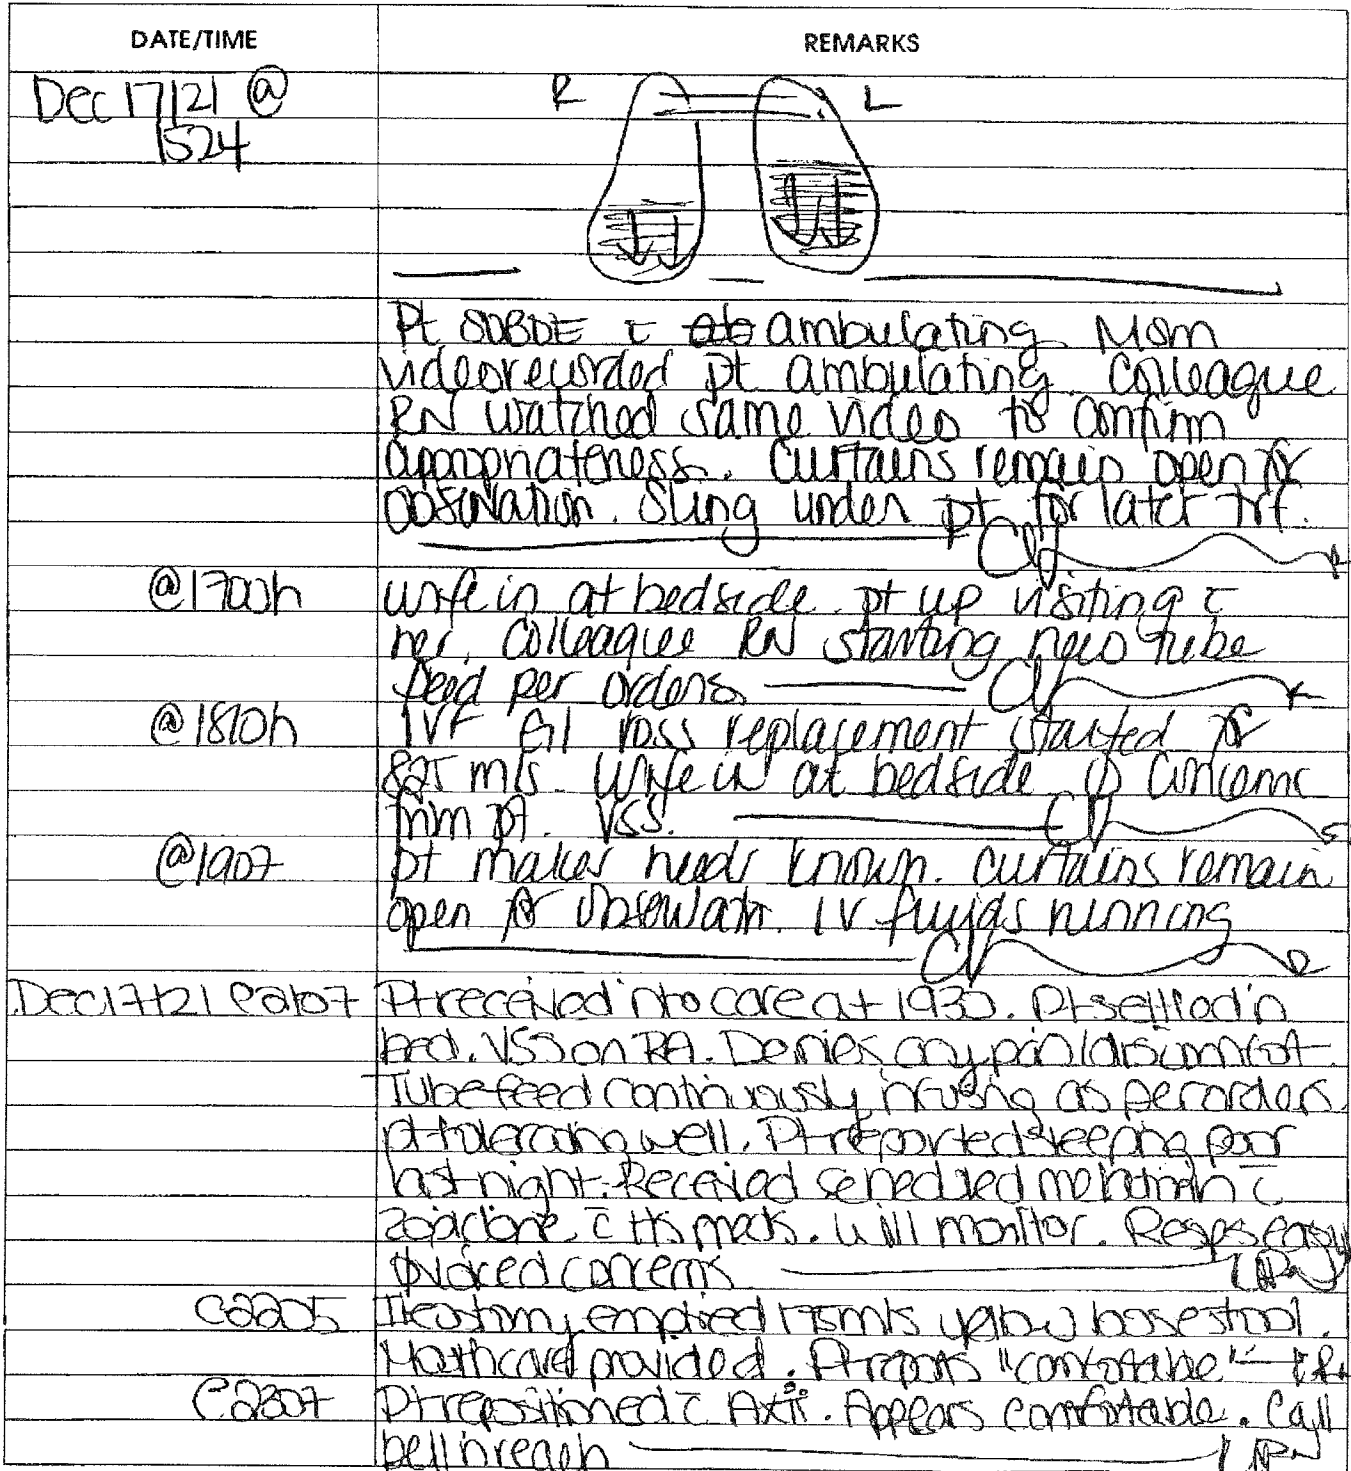 DATE/TIME
REMARKS
Dec 17/21 @
1524
R L
Pt SOBOE c̄ ambulating. Mom
videorecorded pt ambulating. Colleague
RN watched same video to confirm
appropriateness. Curtains remain open for
observation. Sling under pt for later trf.
@1700h
wife in at bedside. pt up visiting c̄
her. Colleague RN starting new tube
feed per orders.
@1810h
IVF GI loss replacement started for
825 mls. Wife in at bedside. ∅ concerns
from pt. VSS.
@1907
pt makes needs known. Curtains remain
open for observatn. IV fluids running
Dec 17/21 @2107
Pt received into care at 1930. Pt settled in
bed. VSS on RA. Denies any pain/discomfort.
Tube feed continuously infusing as per orders.
pt tolerating well. Pt reported sleeping poor
last night. Received scheduled melatonin c̄
zopiclone c̄ HS meds. Will monitor. Resps easy
∅ voiced concerns
@2205
Ileostomy emptied 175mls yellow loose stool.
Mouthcare provided. Pt reports "comfortable"
@2307
Pt repositioned c̄ Ax2. Appears comfortable. Call
bell in reach